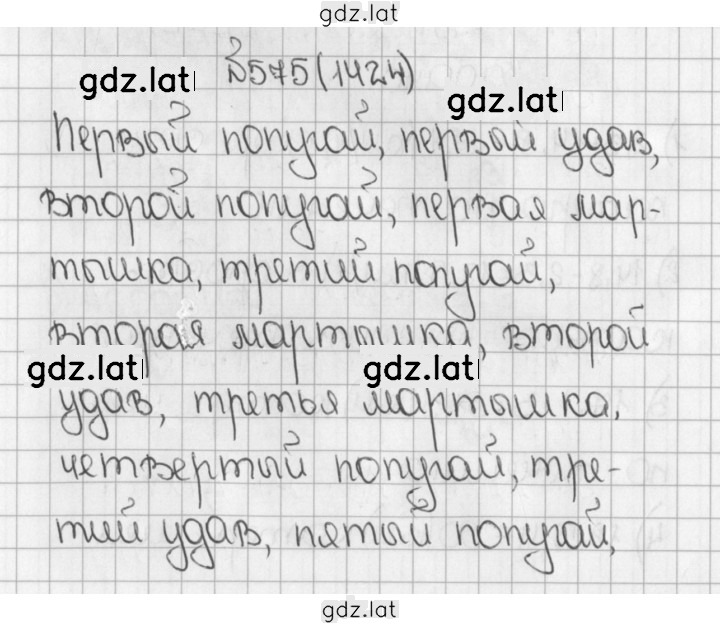 gdz.lat
№575(1424)
gdz.lat
gdz.lat
Первый попугай, первый удав,
второй попугай, первая мар-
тышка, третий попугай,
вторая мартышка, второй
gdz.lat
gdz.lat
удав, третья мартышка,
четвертый попугай, тре-
тий удав, пятый попугай,
gdz.lat